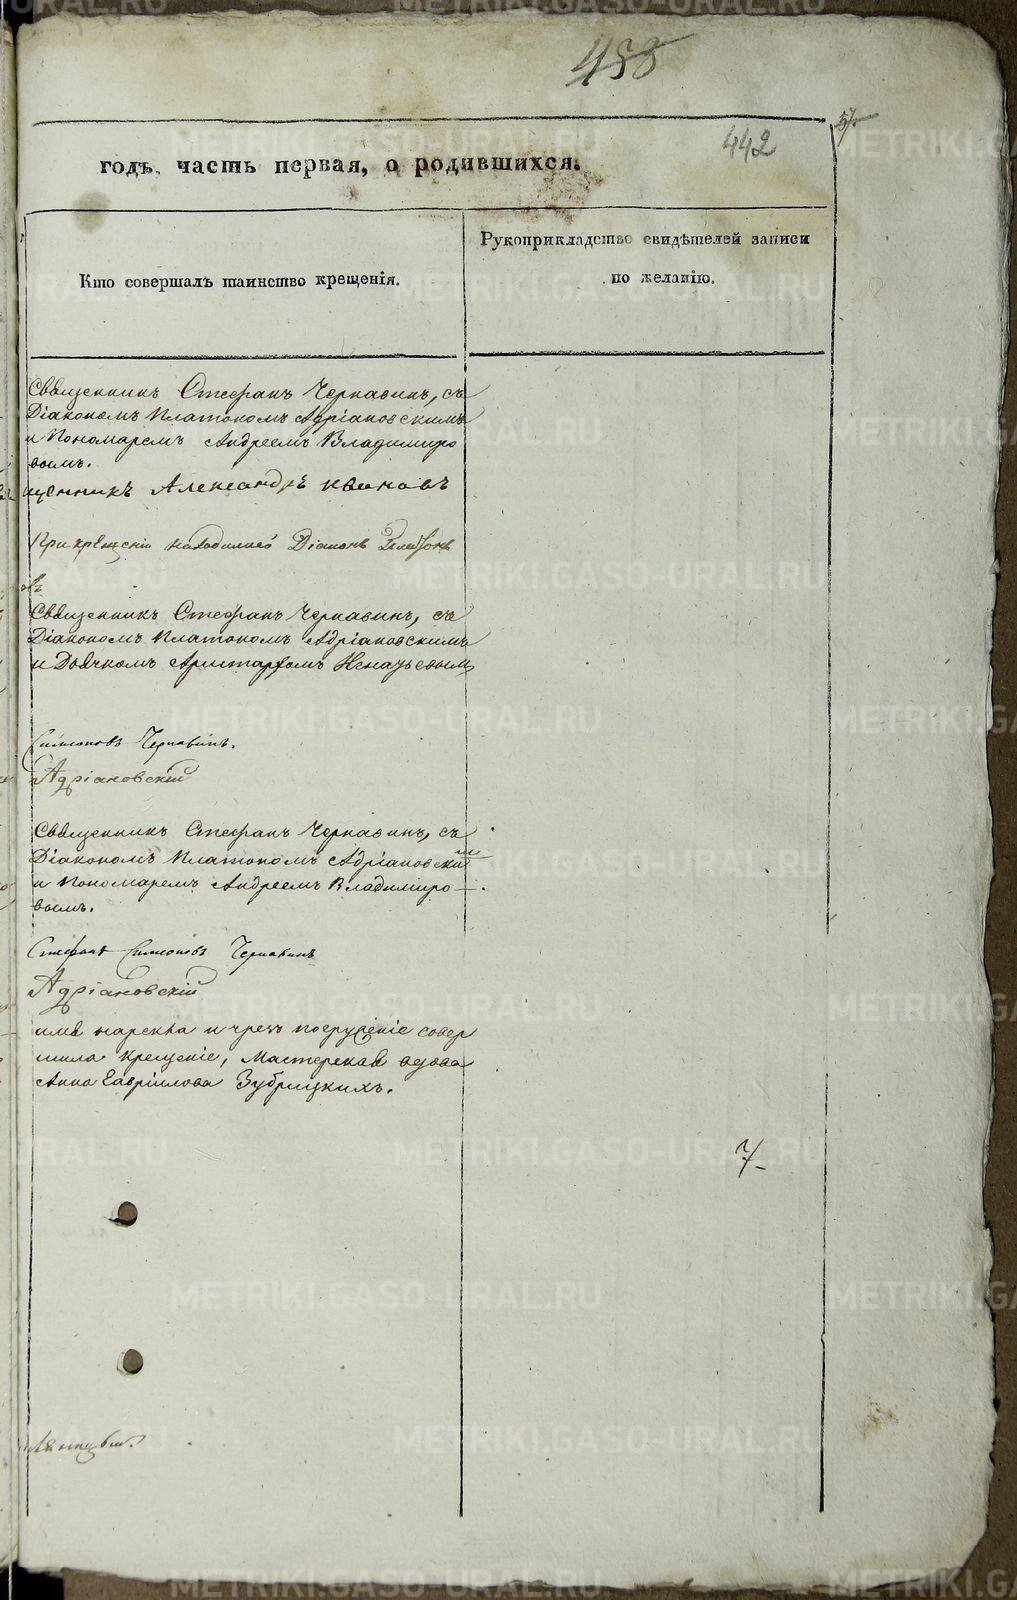 458
57
442
годъ, часть первая, о родившихся.
Кто совершалъ таинство крещенія.
Рукоприкладство свидѣтелей записи
по желанію.
Священникъ Стефанъ Чернавинъ, съ
Діакономъ Платономъ Адріановскимъ
и Пономаремъ Андреемъ Владимиро
вымъ.
щенникъ Александръ Ивановъ
При крещеніи находился Діаконъ
Священникъ Стефанъ Чернавинъ, съ
Діакономъ Платономъ Адріановскимъ
и Дьячкомъ Аристархомъ
Симеоновъ Чернавинъ.
Адріановскій
Священникъ Стефанъ Чернавинъ, съ
Діакономъ Платономъ Адріановским
и Пономаремъ Андреемъ Владимиро
вымъ.
Стефанъ Симеоновъ Чернавинъ
Адріановскій
имя нарекла и чрезъ погруженіе совер
шила крещеніе, Мастерская вдова
Анна Гавріилова Зубрицкихъ.
7
METRIKI.GASO-URAL.RU